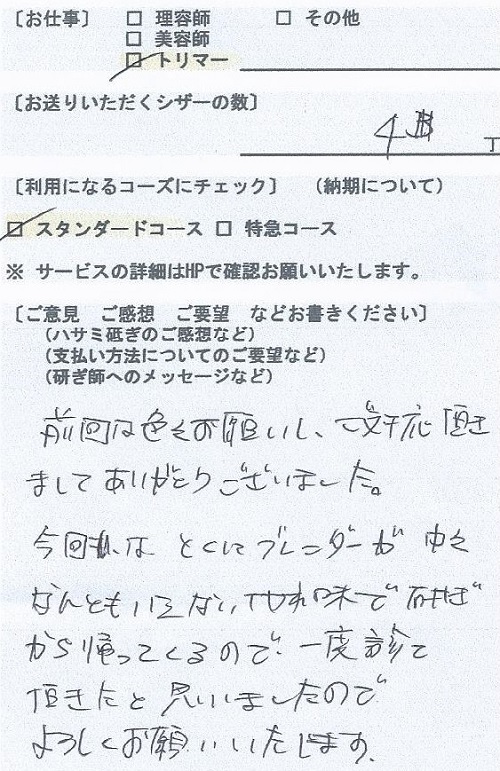 〔お仕事〕 □ 理容師 □ その他
□ 美容師
□ トリマー
〔お送りいただくシザーの数〕
4 丁
〔利用になるコーズにチェック〕 （納期について）
□ スタンダードコース □ 特急コース
※ サービスの詳細はHPで確認お願いいたします。
〔ご意見 ご感想 ご要望 などお書きください〕
（ハサミ砥ぎのご感想など）
（支払い方法についてのご要望など）
（研ぎ師へのメッセージなど）
前回は色々お願いし、ご対応頂き
ましてありがとうございました。
今回は とくにブレンダーが
なんともいえない切れ味で 研ぎ
から帰ってくるので、一度診て
頂きたと思いいましたので
よろしくお願いいたします。